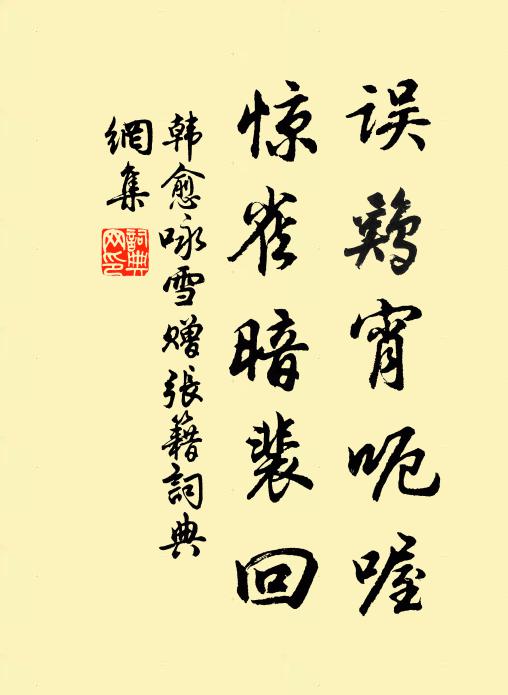 误鸡宵呃喔
惊雀暗裴回
韩愈咏雪赠张籍词典
网集
词典网印